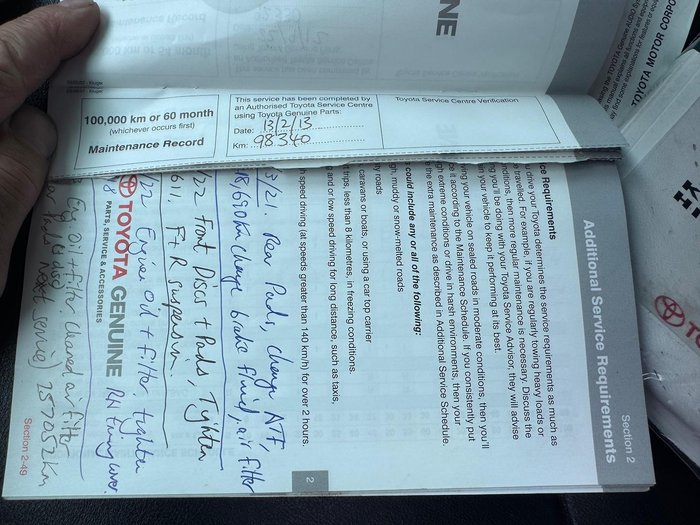 100,000 km or 60 month
(whichever occurs first)
Maintenance Record
This service has been completed by
an Authorised Toyota Service Centre
using Toyota Genuine Parts:
Date: 13/2/13
Km: 98340
Toyota Service Centre Verification
NE
TOYOTA MOTOR CORPO
Section 2
Additional Service Requirements
ce Requirements
drive your Toyota determines the service requirements as much as
travelled. For example, if you are regularly towing heavy loads or
nditions, then more regular maintenance is necessary. Discuss the
ng you'll be doing with your Toyota Service Advisor, they will advise
n your vehicle to keep it performing at its best.
ing your vehicle on sealed roads in moderate conditions, then you'll
e it according to the Maintenance Schedule. If you consistently put
gh extreme conditions or drive in harsh environments, then your
e the extra maintenance as described in Additional Service Schedule.
could include any or all of the following:
gh, muddy or snow-melted roads
y roads
caravans or boats, or using a car top carrier
trips, less than 8 kilometres, in freezing conditions.
and or low speed driving for long distance, such as taxis.
h speed driving (at speeds greater than 140 km/h) for over 2 hours.
2
3/21 Rear Pads, change ATF,
18,690km change brake fluid, air filter
/22 Front Discs + Pads, Tighten
611, F+R suspension.
/22 Engine oil + filter, tighten
RH timing cover.
TOYOTA GENUINE
PARTS, SERVICE & ACCESSORIES
Eng oil + filter cleaned air filter
next service) 257052km
Section 2-49